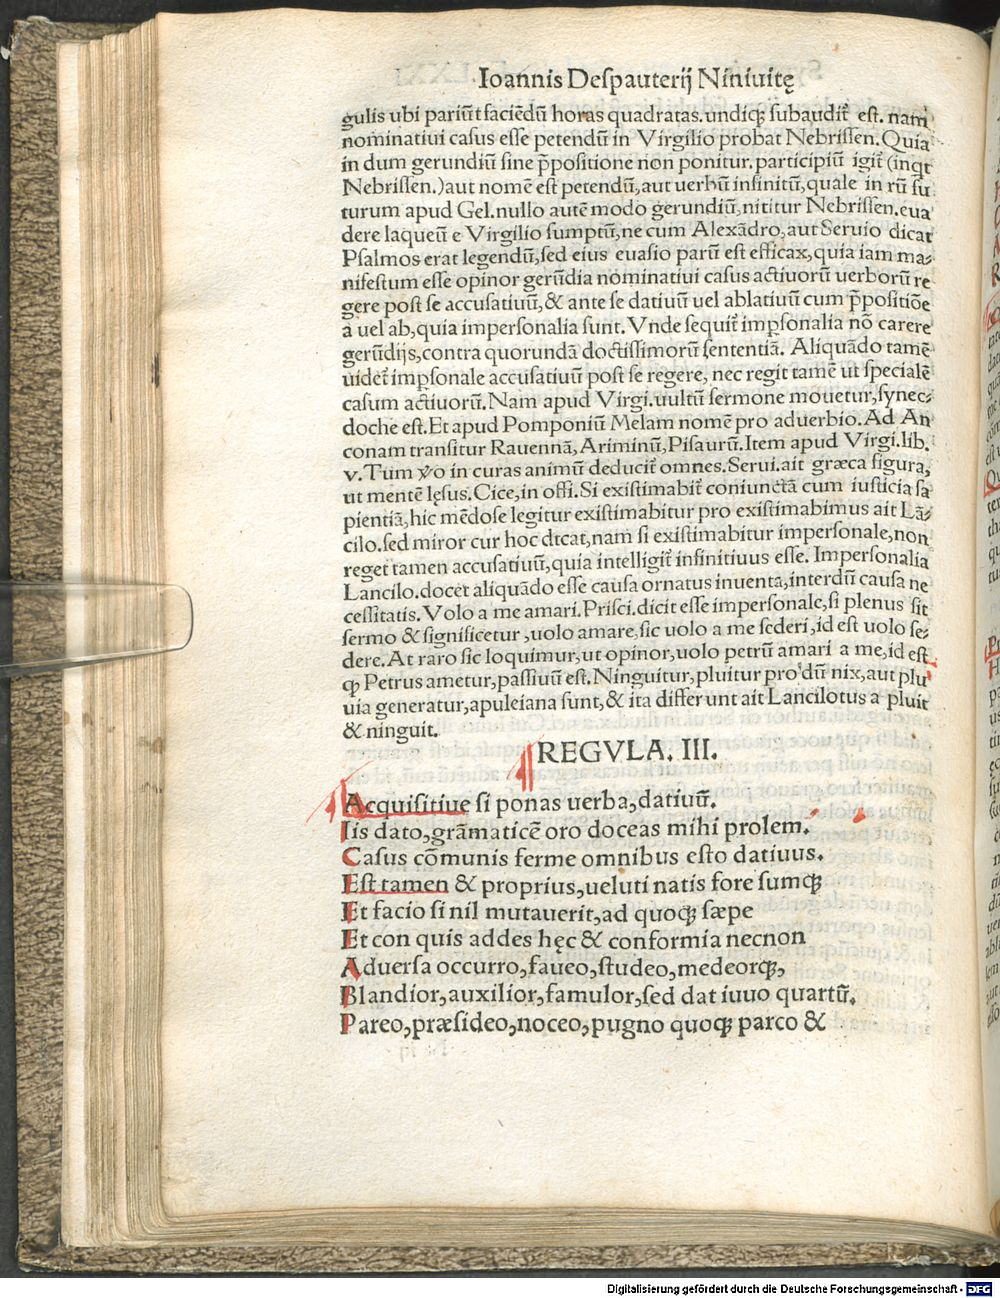 Ioannis Despauterij Niniuitę
gulis ubi pariūt faciēdū horas quadratas. undiqꝫ subaudit᷑ est. nam
nominatiui casus esse petendū in Virgilio probat Nebrissen. Quia
in dum gerundiū sine p̄positione non ponitur. participiū igit᷑ (inqt
Nebrissen.) aut nomē est petendū, aut uerbū infinitū, quale in rū fu
turum apud Gel. nullo autē modo gerundiū, nititur Nebrissen. eua
dere laqueū e Virgilio sumptū, ne cum Alexādro, aut Seruio dicat
Psalmos erat legendū, sed eius euasio parū est efficax, quia iam ma⸗
nifestum esse opinor gerūdia nominatiui casus actiuorū uerborū re
gere post se accusatiuū, & ante se datiuū uel ablatiuū cum p̄positiōe
a uel ab, quia impersonalia sunt. Vnde sequit᷑ imꝑsonalia nō carere
gerūdijs, contra quorundā doctissimorū sententiā. Aliquādo tamē
uidet᷑ imꝑsonale accusatiuū post se regere, nec regit tamē ut specialē
casum actiuorū. Nam apud Virgi. uultū sermone mouetur, synec⸗
doche est. Et apud Pomponiū Melam nomē pro aduerbio. Ad An
conam transitur Rauennā, Ariminū, Pisaurū. Item apud Virgi. lib.
v. Tum ꝟo in curas animū deducit᷑ omnes. Serui. ait græca figura,
ut mentē lęsus. Cice, in offi. Si existimabit᷑ coniunctā cum iusticia sa
pientiā, hic mēdose legitur existimabitur pro existimabimus ait Lā⸗
cilo. sed miror cur hoc dicat, nam si existimabitur impersonale, non
reget tamen accusatiuū, quia intelligit᷑ infinitiuus esse. Impersonalia
Lancilo. docet aliquādo esse causa ornatus inuenta, interdū causa ne
cessitatis. Volo a me amari. Prisci. dicit esse impersonale, si plenus sit
sermo & significetur, uolo amare, sic uolo a me sederi, id est uolo se⸗
dere. At raro sic loquimur, ut opinor, uolo petrū amari a me, id est
ꝙ Petrus ametur, passiuū est. Ninguitur, pluitur pro dū nix, aut plu
uia generatur, apuleiana sunt, & ita differunt ait Lancilotus a pluit
& ninguit.
REGVLA. III.
Acquisitiue si ponas uerba, datiuū.
Iis dato, grāmaticē oro doceas mihi prolem.
Casus cōmunis ferme omnibus esto datiuus.
Est tamen & proprius, ueluti natis fore sumqꝫ
Et facio si nil mutauerit, ad quoqꝫ sæpe
Et con quis addes hęc & conformia necnon
Aduersa occurro, faueo, studeo, medeorqꝫ,
Blandior, auxilior, famulor, sed dat iuuo quartū.
Pareo, præsideo, noceo, pugno quoqꝫ parco &
Digitalisierung gefördert durch die Deutsche Forschungsgemeinschaft - DFG